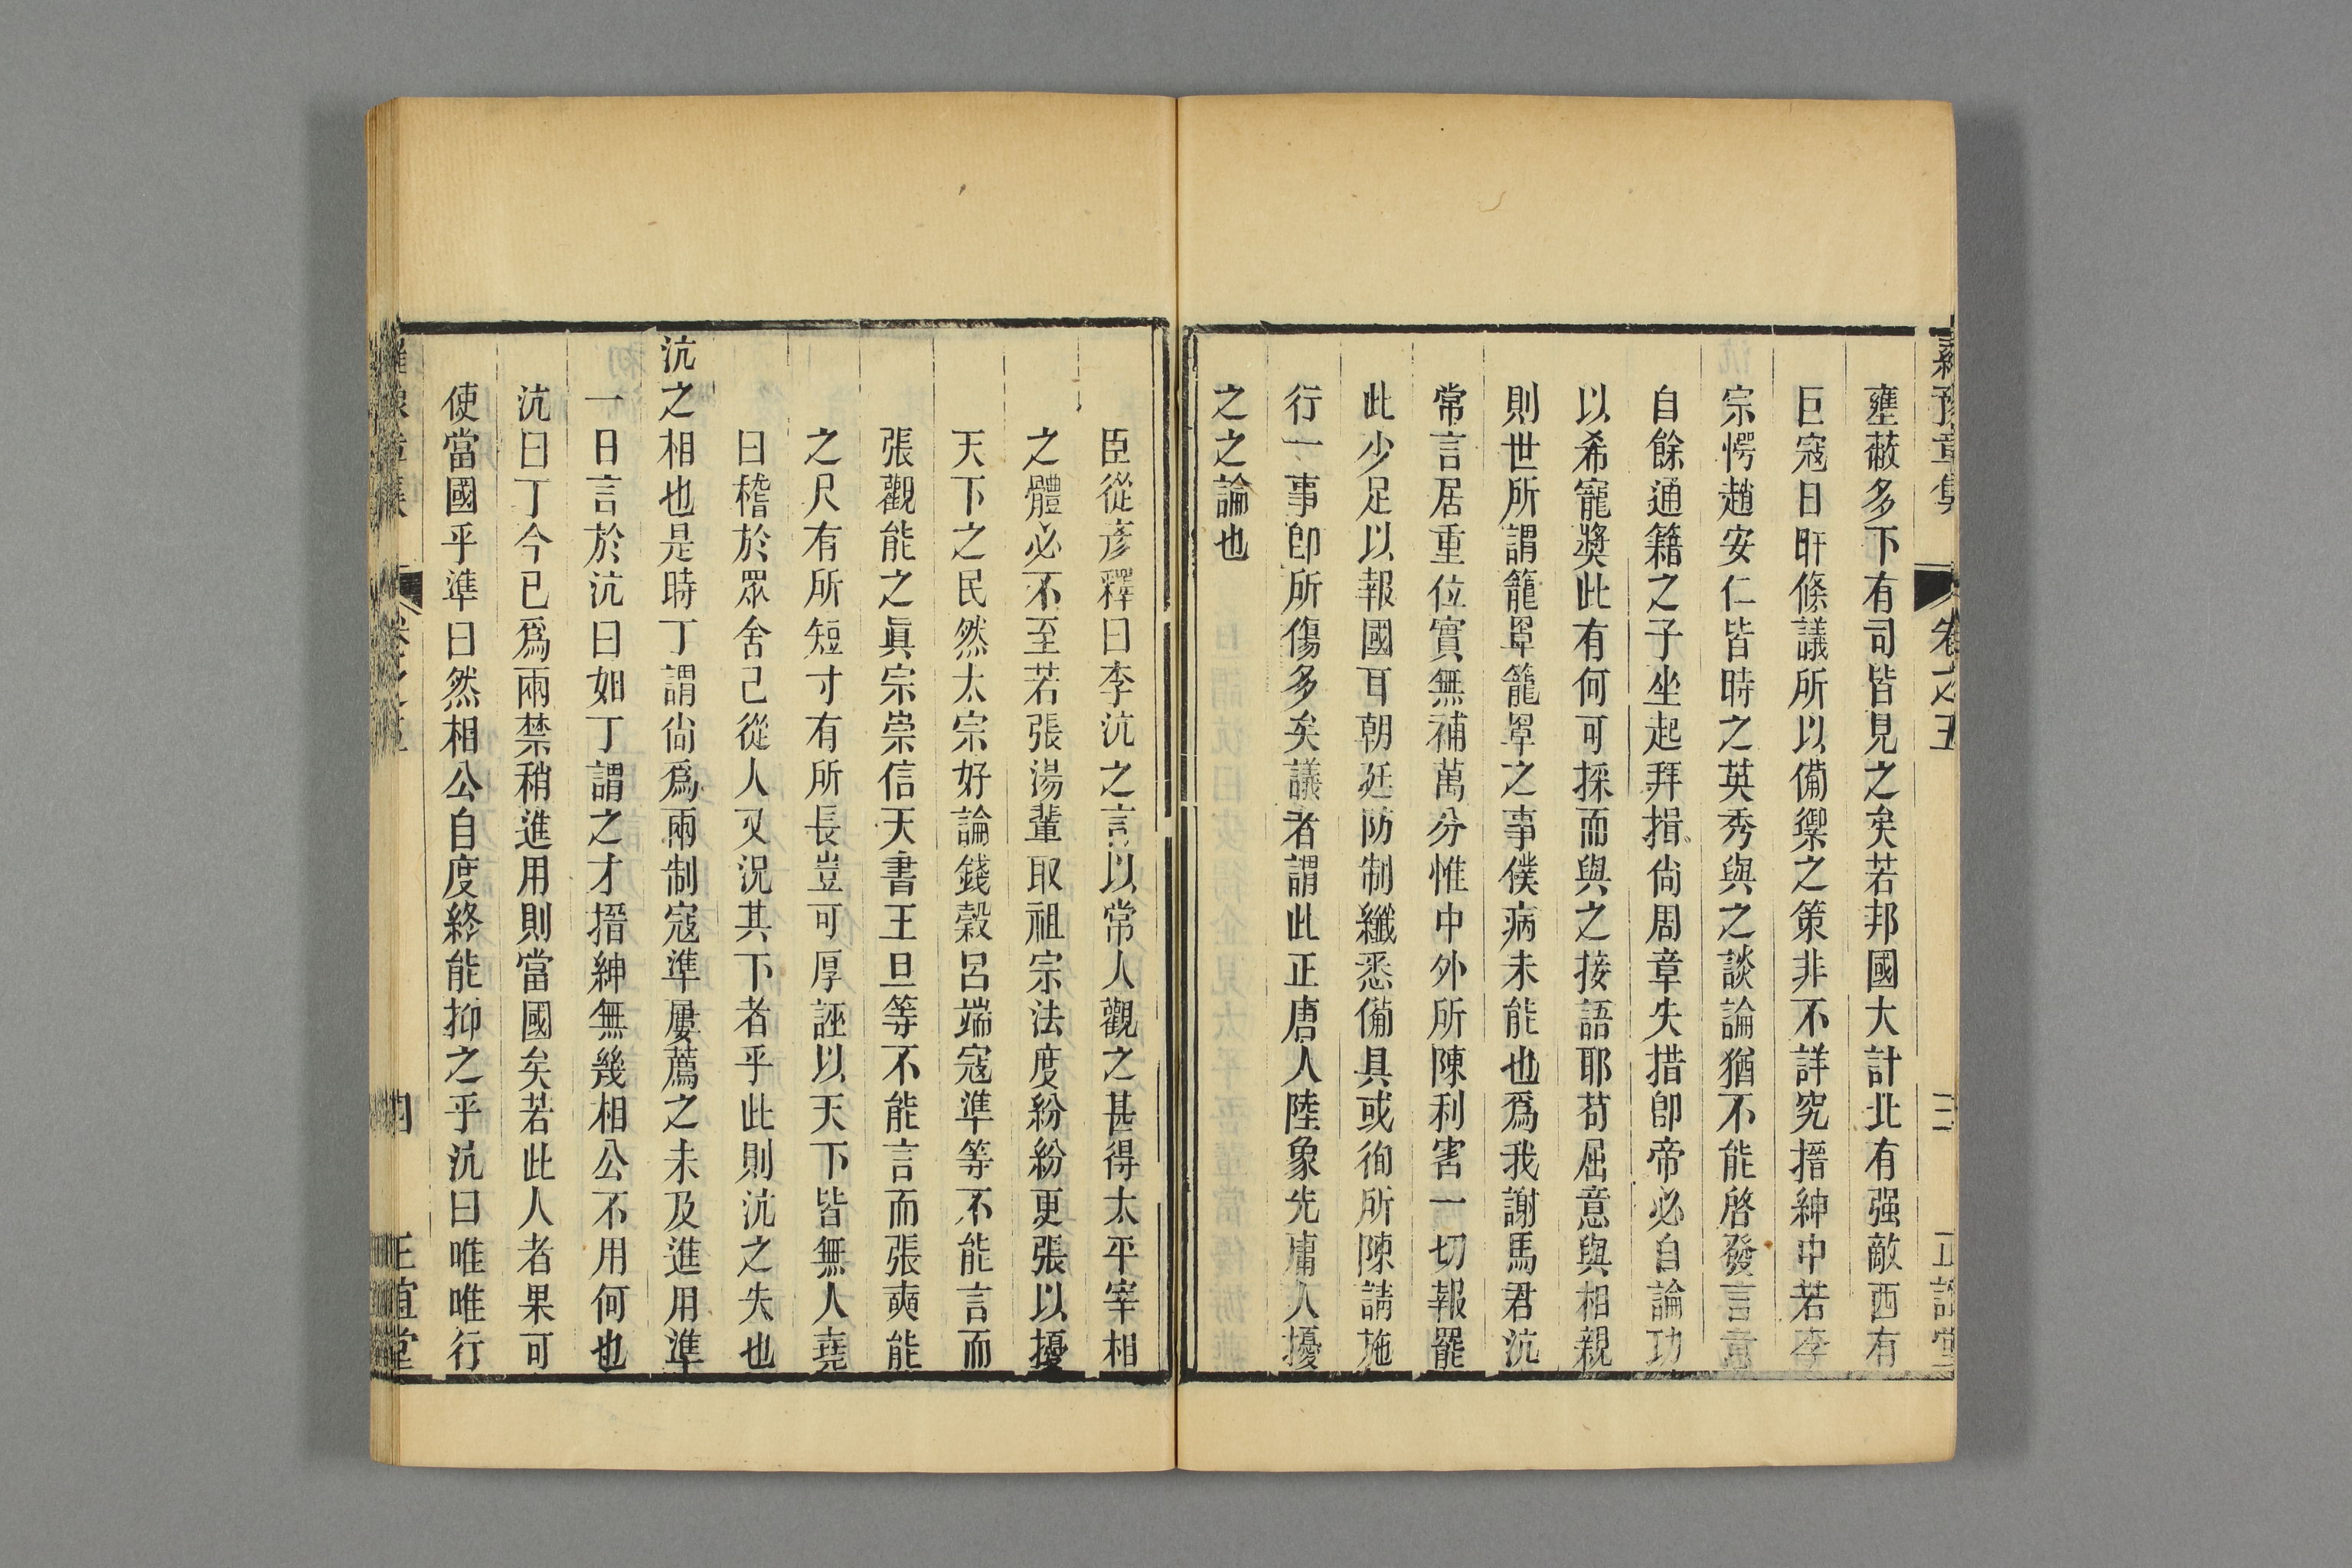 羅豫章集 卷之五 三 正誼堂
壅蔽多下有司皆見之矣若邦國大計北有强敵西有
巨寇日旰條議所以備禦之策非不詳究搢紳中若李
宗愕趙安仁皆時之英秀與之談論猶不能啓發言意
自餘通籍之子坐起拜揖尙周章失措卽帝必自論功
以希寵奬此有何可採而與之接語耶苟屈意與相親
則世所謂籠罩籠罩之事僕病未能也爲我謝馬君沆
常言居重位實無補萬分惟中外所陳利害一切報罷
此少足以報國耳朝廷防制纖悉備具或徇所陳請施
行一事卽所傷多矣議者謂此正唐人陸象先庸人擾
之之論也
臣從彥釋曰李沆之言以常人觀之甚得太平宰相
之體必不至若張湯輩取祖宗法度紛紛更張以擾
天下之民然太宗好論錢穀呂端寇準等不能言而
張觀能之眞宗崇信天書王旦等不能言而張奭能
之尺有所短寸有所長豈可厚誣以天下皆無人堯
曰稽於眾舍己從人又況其下者乎此則沆之失也
沆之相也是時丁謂尙爲兩制寇準屢薦之未及進用準
一日言於沆曰如丁謂之才搢紳無幾相公不用何也
沆曰丁今已爲兩禁稍進用則當國矣若此人者果可
使當國乎準曰然相公自度終能抑之乎沆曰唯唯行
羅豫章集 卷之五 四 正誼堂